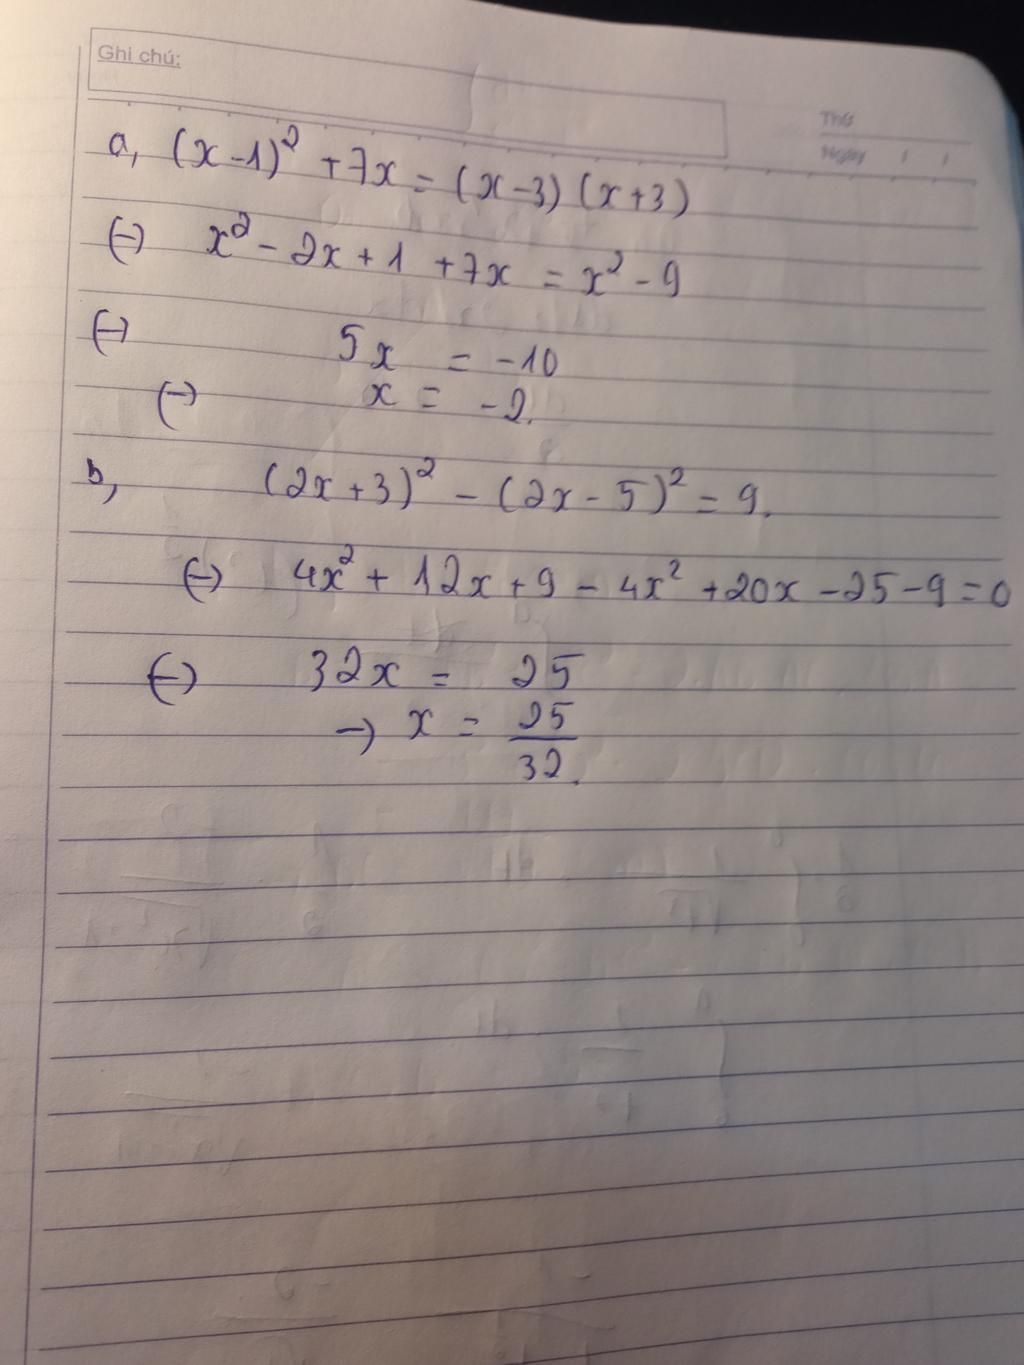 Ghi chú:
Thứ
Ngày / /
a, (x-1)² + 7x = (x-3) (x+3)
(-) x² - 2x + 1 + 7x = x² - 9
(-) 5x = -10
(-) x = -2.
b, (2x+3)² - (2x-5)² = 9.
(-) 4x² + 12x + 9 - 4x² + 20x - 25 - 9 = 0
(-) 32x = 25
-) x = 25/32.